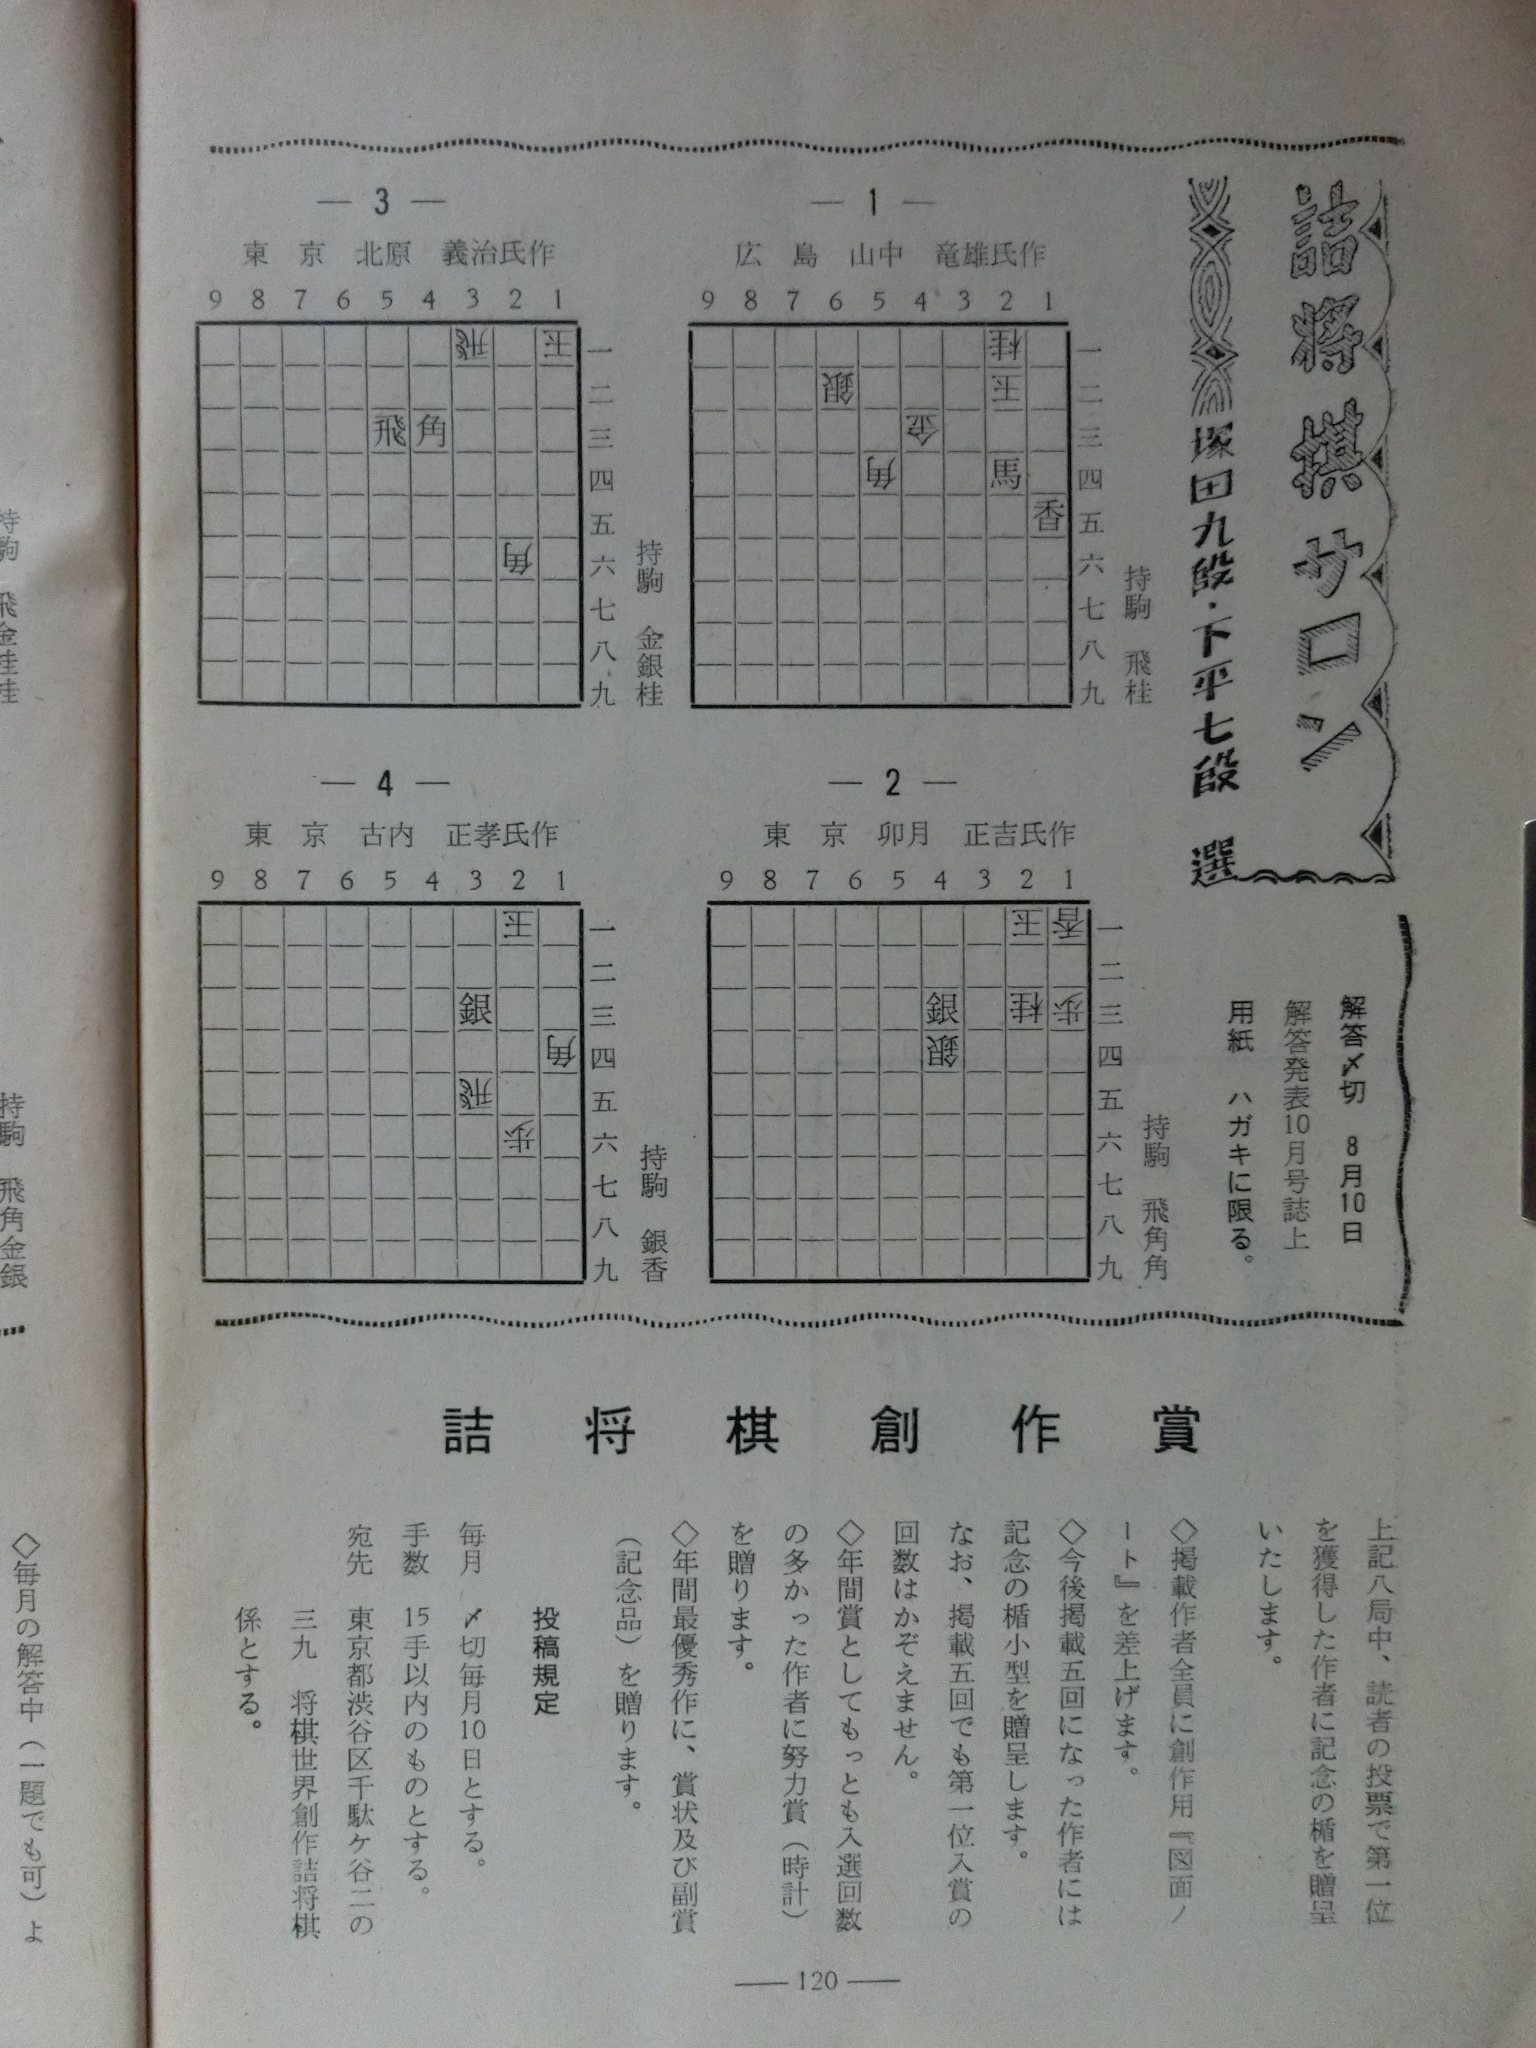 詰将棋サロン
塚田九段・下平七段 選
解答〆切 8月10日
解答発表10月号誌上
用紙 ハガキに限る。
― 1 ―
広島 山中 竜雄氏作
9 8 7 6 5 4 3 2 1
桂
銀 玉
金
角 馬
香
一
二
三
四
五
六
七
八
九
持駒 飛桂
― 2 ―
東京 卯月 正吉氏作
9 8 7 6 5 4 3 2 1
玉 香
銀 桂 歩
銀
一
二
三
四
五
六
七
八
九
持駒 飛角角
― 3 ―
東京 北原 義治氏作
9 8 7 6 5 4 3 2 1
飛 玉
飛 角
角
一
二
三
四
五
六
七
八
九
持駒 金銀桂
― 4 ―
東京 古内 正孝氏作
9 8 7 6 5 4 3 2 1
玉
銀
角
飛
歩
一
二
三
四
五
六
七
八
九
持駒 銀香
詰将棋創作賞
上記八局中、読者の投票で第一位
を獲得した作者に記念の楯を贈呈
いたします。
◇掲載作者全員に創作用『図面ノ
ート』を差上げます。
◇今後掲載五回になった作者には
記念の楯小型を贈呈します。
なお、掲載五回でも第一位入賞の
回数はかぞえません。
◇年間賞としてもっとも入選回数
の多かった作者に努力賞（時計）
を贈ります。
◇年間最優秀作に、賞状及び副賞
（記念品）を贈ります。
投稿規定
毎月 〆切毎月10日とする。
手数 15手以内のものとする。
宛先 東京都渋谷区千駄ケ谷二の
三九 将棋世界創作詰将棋
係とする。
― 120 ―
持駒 飛金桂桂
持駒 飛角金銀
◇毎月の解答中（一題でも可）よ